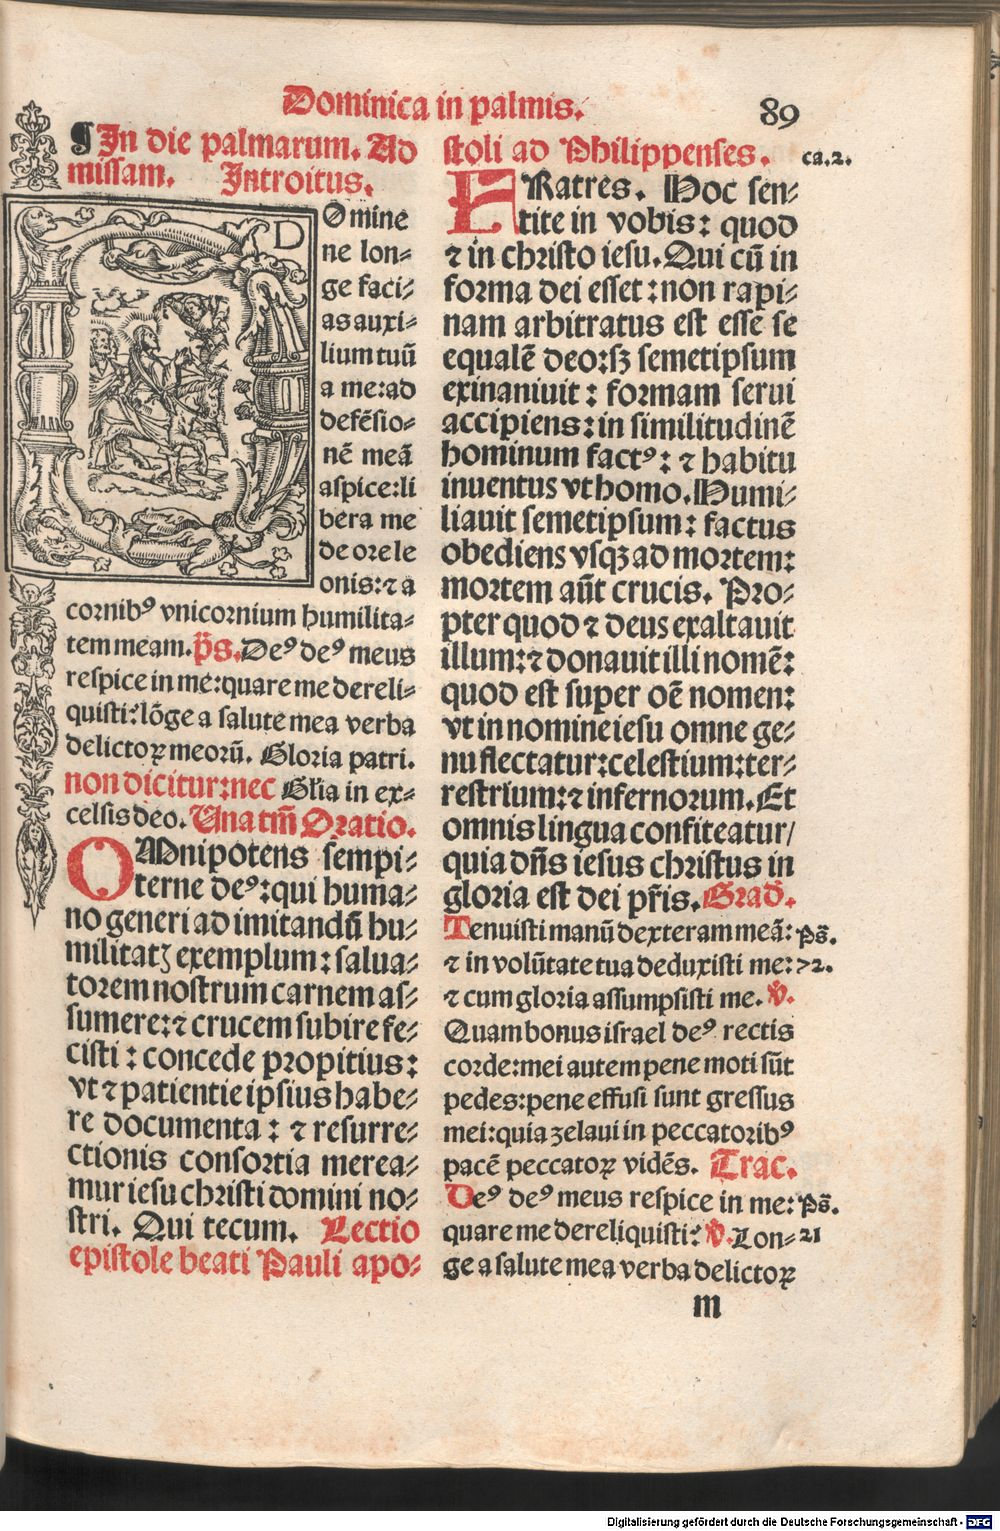 Dominica in palmis.
89
¶In die palmarum. Ad
missam. Introitus.
D
Omine
ne lon⸗
ge faci⸗
as auxi⸗
lium tuū
a me:ad
defēsio⸗
nē meā
aspice:li
bera me
de ore le
onis:⁊ a
cornibꝰ vnicornium humilita⸗
tem meam. p̄s. Deꝰ deꝰ meus
respice in me:quare me dereli⸗
quisti?lōge a salute mea verba
delictoꝝ meorū. Gloria patri.
non dicitur:nec Glīa in ex⸗
celsis deo. Una tm̄ Oratio.
OMnipotens sempi⸗
terne deꝰ:qui huma⸗
no generi ad imitandū hu⸗
militatꝫ exemplum: salua⸗
torem nostrum carnem as⸗
sumere:⁊ crucem subire fe⸗
cisti: concede propitius:
vt ⁊ patientie ipsius habe⸗
re documenta: ⁊ resurre⸗
ctionis consortia merea⸗
mur iesu christi domini no⸗
stri. Qui tecum. Lectio
epistole beati Pauli apo⸗
stoli ad Philippenses. ca.2.
FRatres. Hoc sen⸗
tite in vobis: quod
⁊ in christo iesu. Qui cū in
forma dei esset: non rapi⸗
nam arbitratus est esse se
equalē deo:sꝫ semetipsum
exinaniuit: formam serui
accipiens: in similitudinē
hominum factꝰ: ⁊ habitu
inuentus vt homo. Humi⸗
liauit semetipsum: factus
obediens vsqꝫ ad mortem:
mortem aūt crucis. Pro⸗
pter quod ⁊ deus exaltauit
illum:⁊ donauit illi nomē:
quod est super oē nomen:
vt in nomine iesu omne ge⸗
nu flectatur:celestium:ter⸗
restrium:⁊ infernorum. Et
omnis lingua confiteatur/
quia dn̄s iesus christus in
gloria est dei pr̄is. Grad̄.
Tenuisti manū dexteram meā: Ps̄.
⁊ in volūtate tua deduxisti me: 72.
⁊ cum gloria assumpsisti me. v̄.
Quam bonus israel deꝰ rectis
corde:mei autem pene moti sūt
pedes:pene effusi sunt gressus
mei:quia zelaui in peccatoribꝰ
pacē peccatoꝝ vidēs. Trac.
Deꝰ deꝰ meus respice in me: Ps̄.
quare me dereliquisti? v̄. Lon⸗ 21
ge a salute mea verba delictoꝝ
m
Digitalisierung gefördert durch die Deutsche Forschungsgemeinschaft - DFG